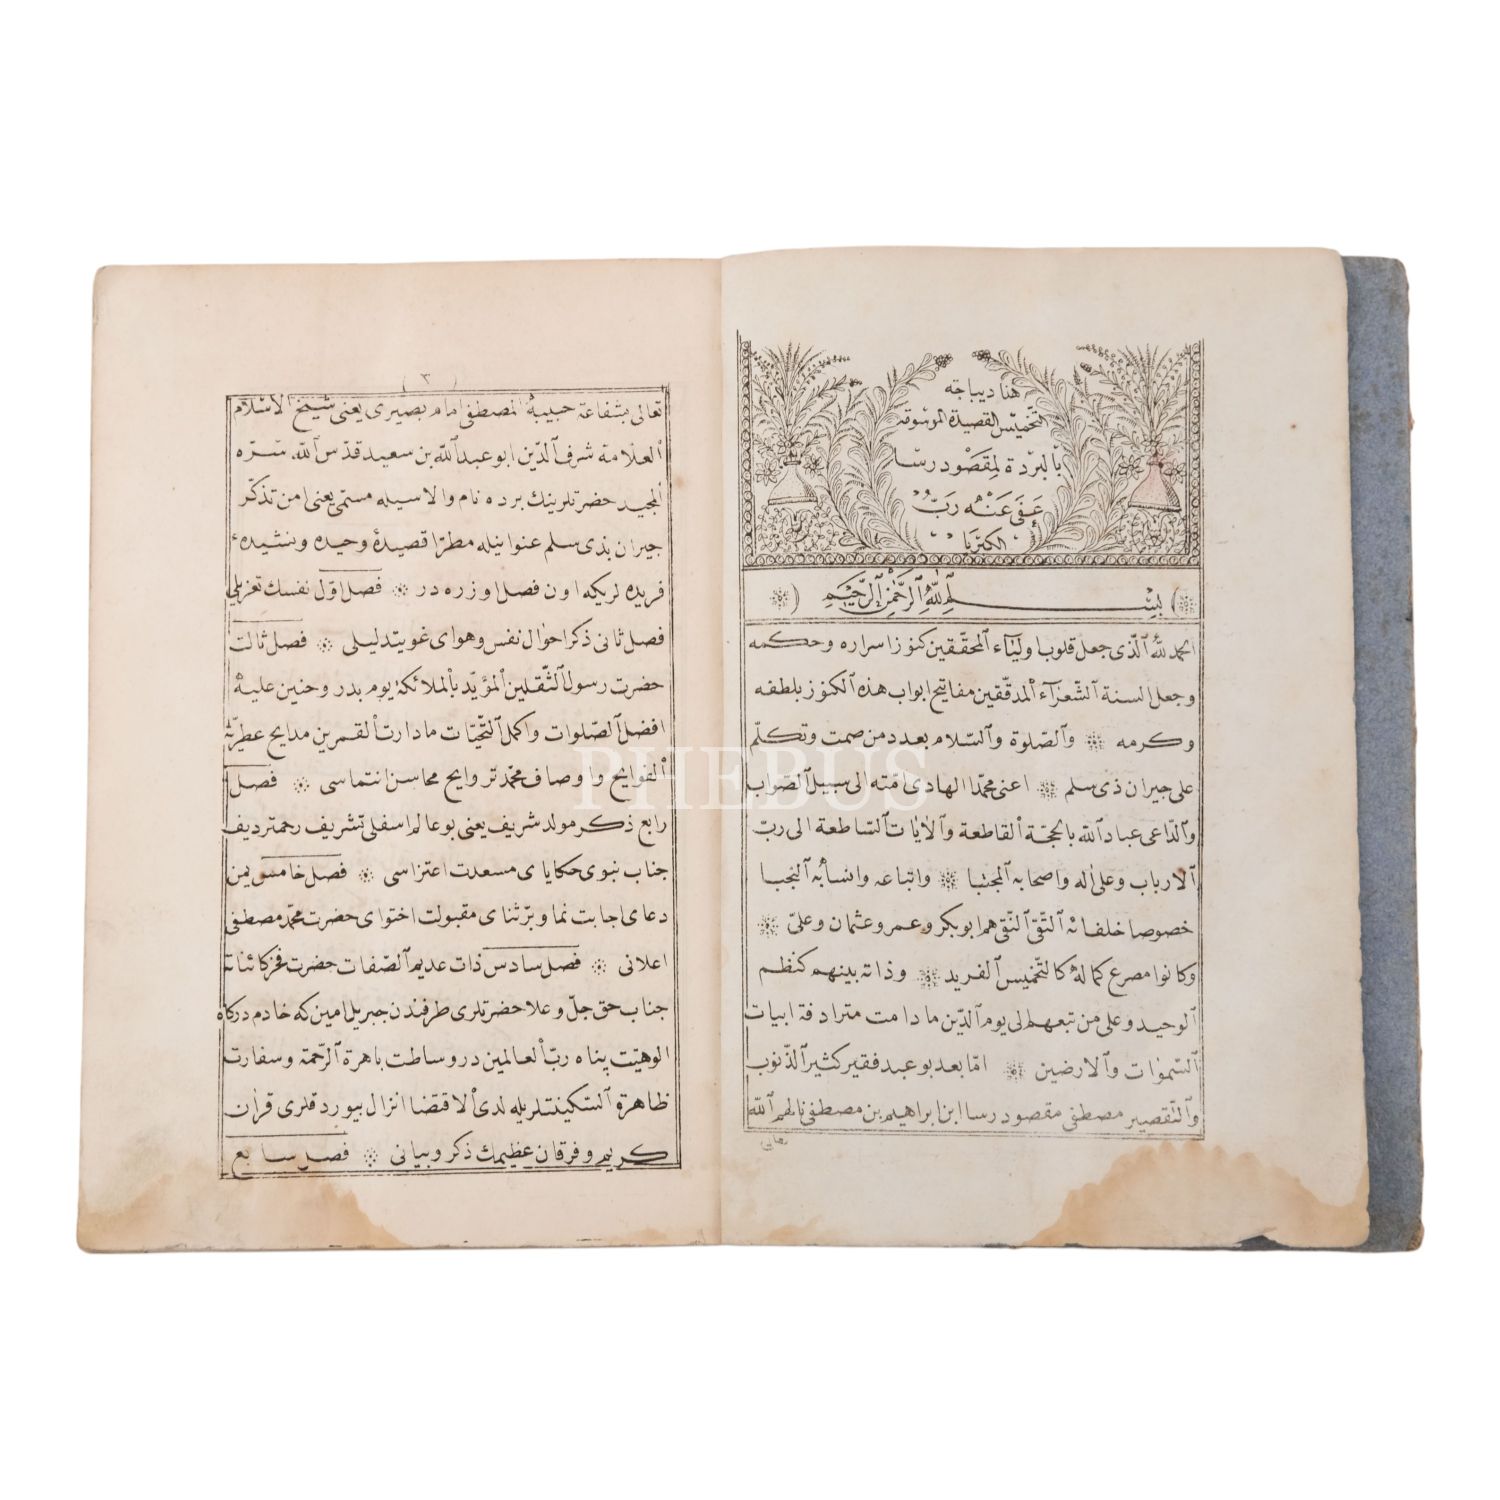 هذا ديباجه
تخميس القصيدة الموسوقه
بالبردة لمقصود رسا
عفى عنه ربّ
الكبريا
بسم الله الرحمن الرحيم
الحمد لله الّذى جعل قلوب اولياء المحقّقين كنوز اسراره وحكمه
وجعل السنة الشّعراء المدقّقين مفاتيح ابواب هذه الكنوز بلطفه
وكرمه والصّلوة والسّلام بعدد من صمت وتكلّم
على جيران ذى سلم اعنى محمّد الهادى امّته الى سبيل الصّواب
والدّاعى عباد الله بالحجّة القاطعة والايات السّاطعة الى ربّ
الارباب وعلى اله واصحابه المجتبا واتباعه وانسابه النجبا
خصوصا خلفائه التّقىّ النّقىّ هم ابوبكر وعمر وعثمان وعلىّ
وكانوا مصرع كماله كالتّخميس الفريد وذاته بينهم كنظم
الوحيد وعلى من تبعهم الى يوم الدّين ما دامت مترادفة ابيات
السّموات والارضين امّا بعد بو عبد فقير كثير الذّنوب
والتّقصير مصطفى مقصود رسا ابن ابراهيم بن مصطفى نالهم الله
تعالى
(٣)
تعالى بشفاعة حبيبه المصطفى امام بصيرى يعنى شيخ الاسلام
العلّامة شرف الدّين ابو عبد الله بن سعيد قدّس الله سرّه
المجيد حضرتلرينك برده نام والاسيله مسمّى يعنى امن تذكّر
جيران بذى سلم عنوانيله مطرّا قصيدۀ وحيده ونشيدۀ
فريده لريكه اون فصل اوزره در فصل اوّل نفسك تغزيلى
فصل ثانى ذكر احوال نفس وهواى غويتدليلى فصل ثالث
حضرت رسول الثّقلين المؤيّد بالملائكة يوم بدر وحنين عليه
افضل الصّلوات واكمل التّحيّات ما دارت القمرين مدايح عطريّة
الفوايح واوصاف محمّدتر وايح محاسن انتماسى فصل
رابع ذكر مولد شريف يعنى بو عالم اسفلى تشريف رحمترديف
جناب نبوى حكاياى مسعدت اعتزاسى فصل خامس يمن
دعاى اجابت نما وبرّ ثناى مقبولت اختواى حضرت محمّد مصطفى
اعلانى فصل سادس ذات عديم الصّفات حضرت فخر كائناته
جناب حق جلّ وعلا حضرتلرى طرفندن جبريل امين كه خادم دركاه
الوهيّت پناه ربّ العالمين در وساطت باهرة الرّحمة وسفارت
ظاهرة السّكينتلريله لدى الاقتضا انزال بيوردقلرى قران
كريم وفرقان عظيمك ذكر وبيانى فصل سابع
PHEBUS